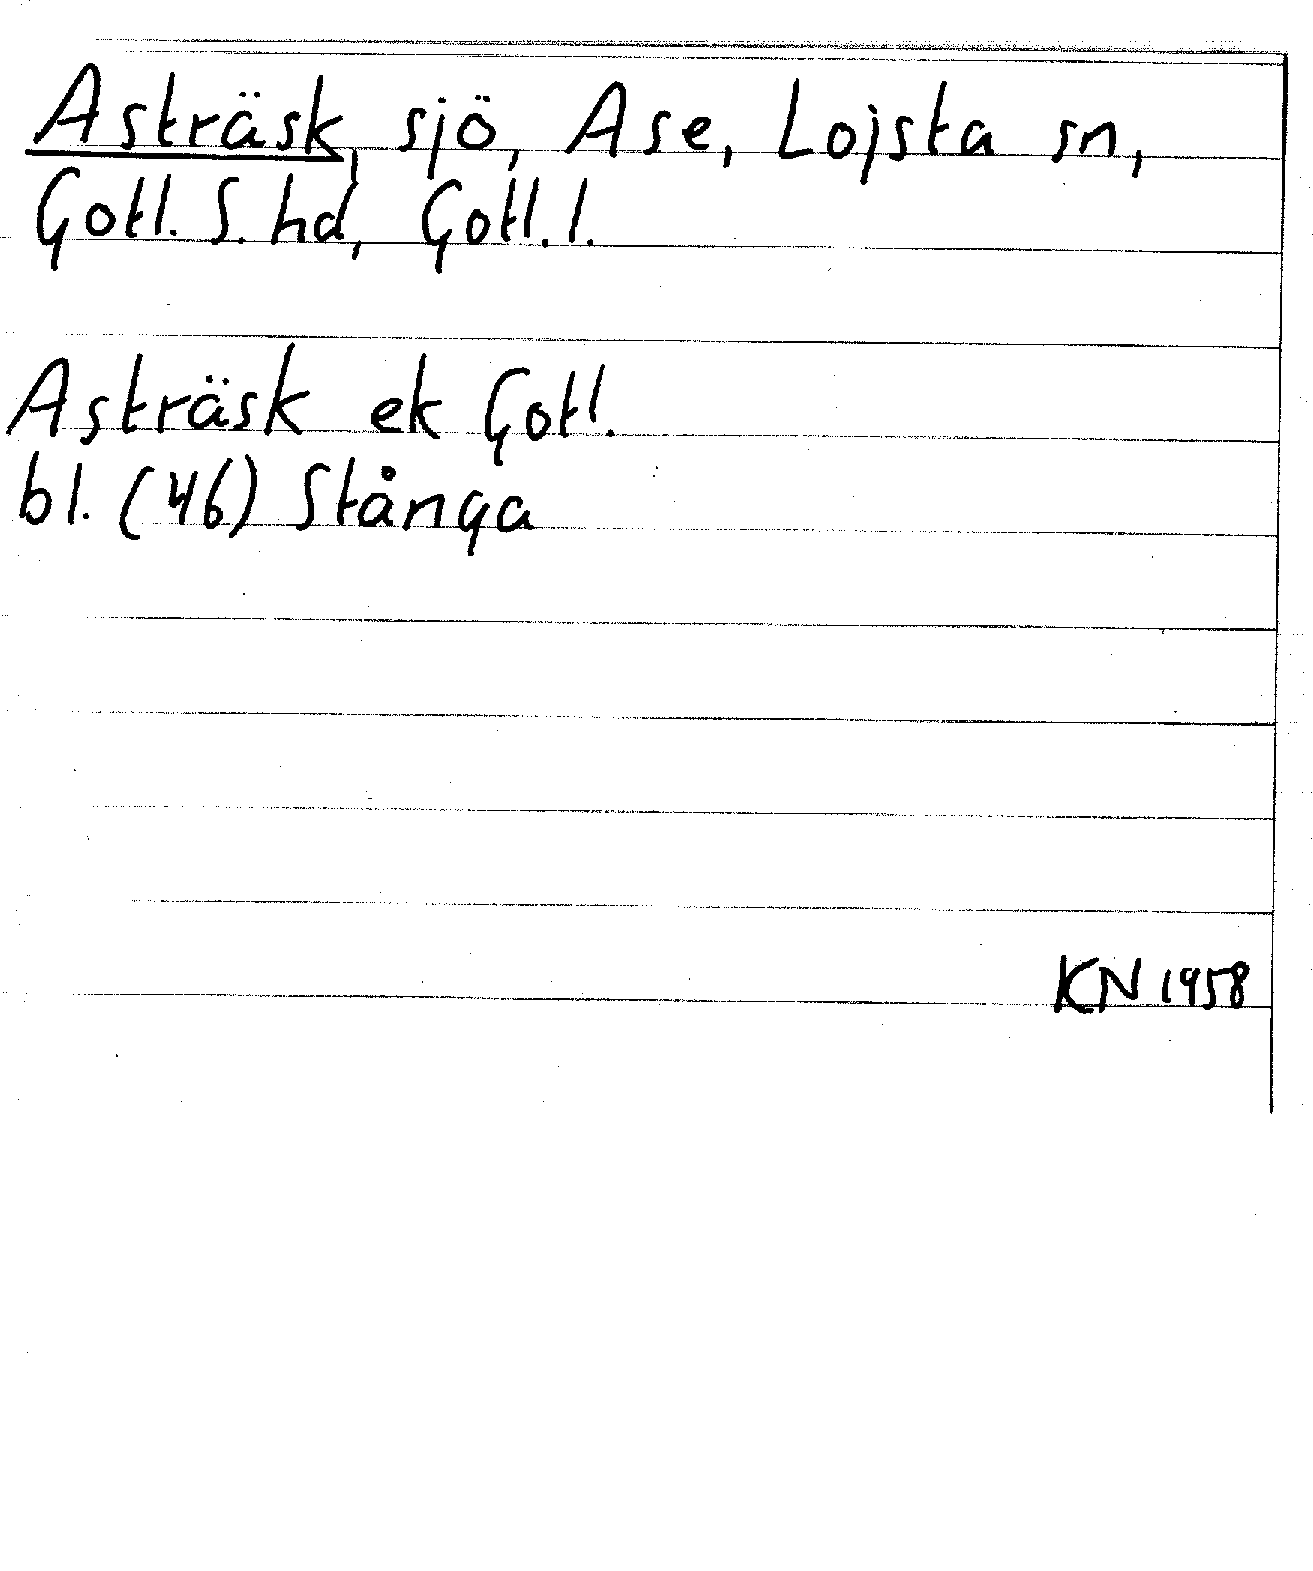 Asträsk, sjö, Ase, Lojsta sn,
Gotl. S. hd, Gotl. l.
Asträsk ek Gotl.
bl. (46) Stånga
KN 1958